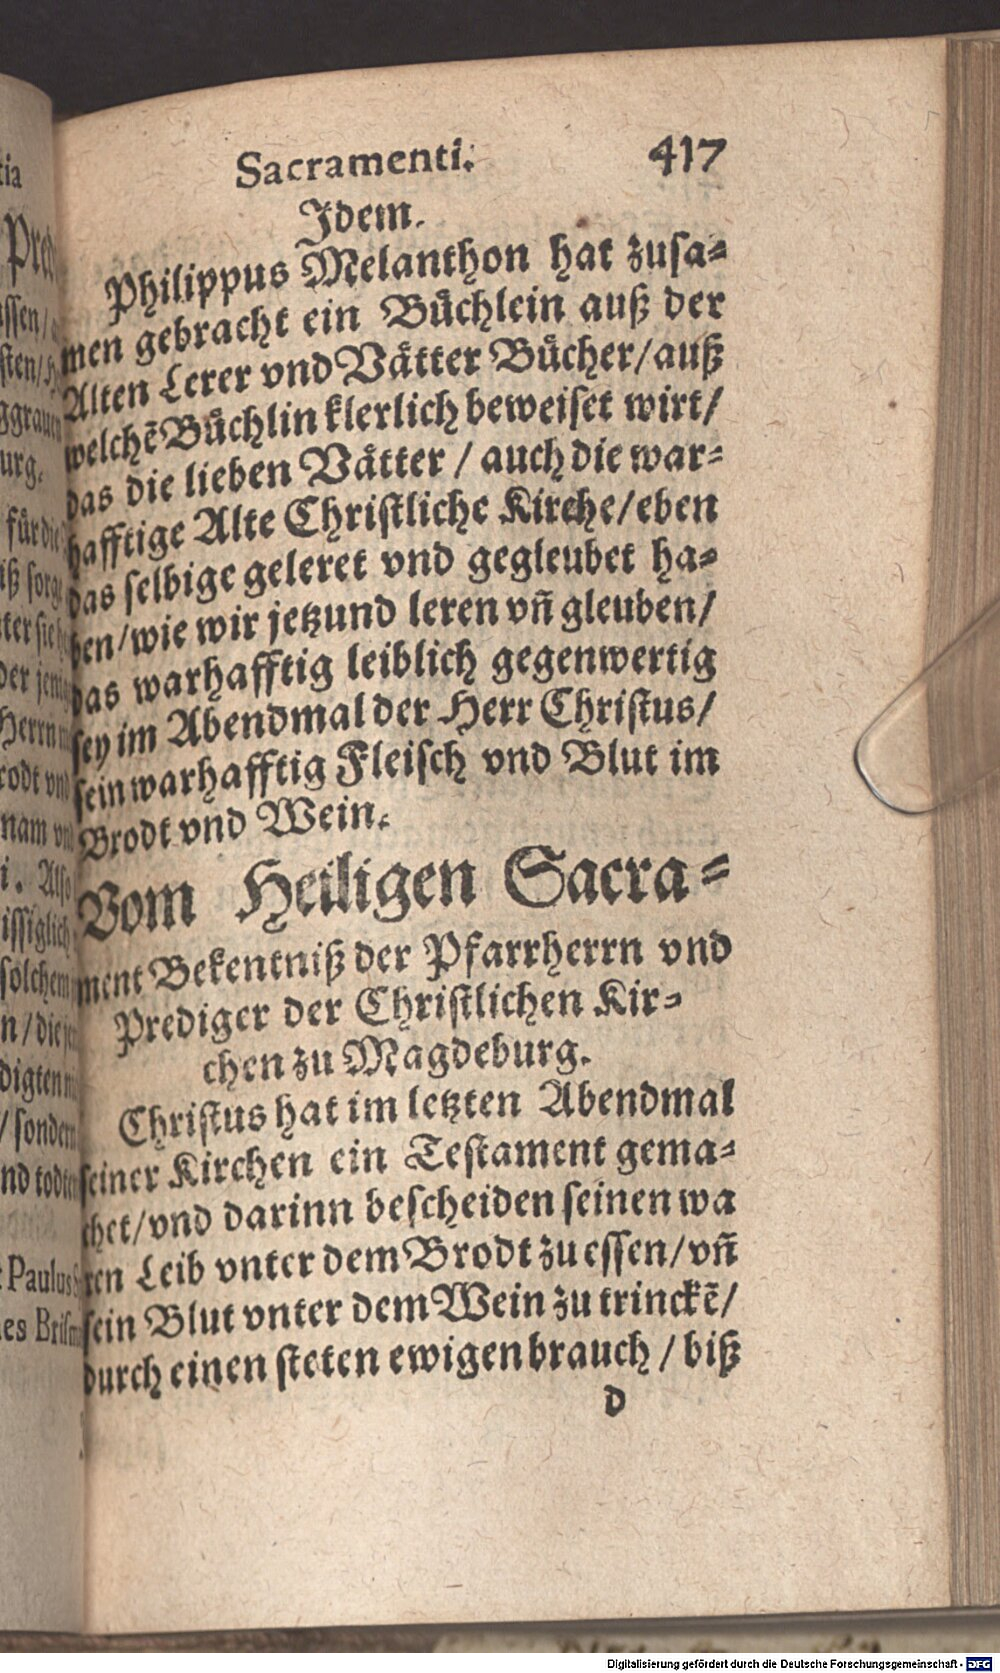 Sacramenti. 417
Idem.
Philippus Melanthon hat zusa-
men gebracht ein Bůchlein auß der
Alten Lerer vnd Våtter Bůcher/auß
welchẽ Bůchlin klerlich beweiset wirt/
das die lieben Våtter / auch die war-
hafftige Alte Christliche Kirche/eben
das selbige geleret vnd gegleubet ha-
ben/wie wir jetzund leren vñ gleuben/
das warhafftig leiblich gegenwertig
sey im Abendmal der Herr Christus/
sein warhafftig Fleisch vnd Blut im
Brodt vnd Wein.
Vom Heiligen Sacra-
ment Bekentniß der Pfarrherrn vnd
Prediger der Christlichen Kir-
chen zu Magdeburg.
Christus hat im letzten Abendmal
seiner Kirchen ein Testament gema-
chet/vnd darinn bescheiden seinen wa
ren Leib vnter dem Brodt zu essen/vñ
sein Blut vnter dem Wein zu trinckẽ/
durch einen steten ewigen brauch / biß
d
Digitalisierung gefördert durch die Deutsche Forschungsgemeinschaft - DFG